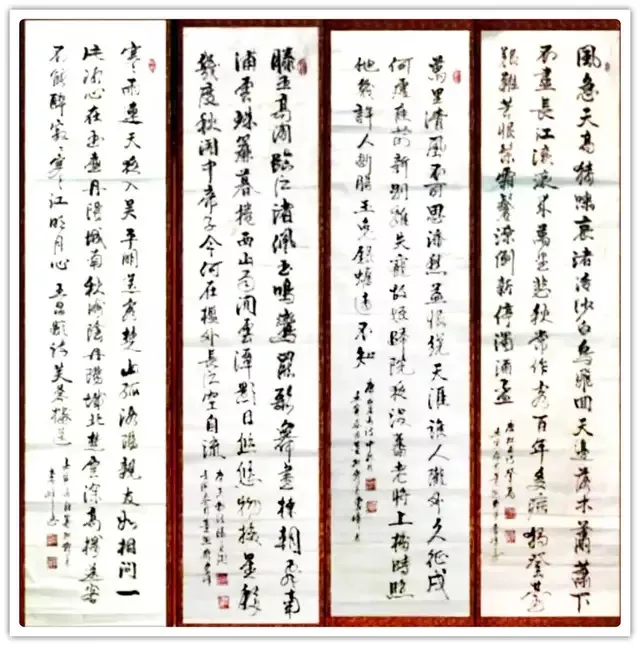 風急天高猿嘯哀渚清沙白鳥飛回天邊落木蕭蕭下
不盡長江滾滾來萬里悲秋常作客百年多病獨登臺
艱難苦恨繁霜鬢潦倒新停濁酒盃
萬里清風不可思添愁益恨繞天涯誰人隴外久征戍
何處庭前新別離失寵故姬歸院夜沒蕃老將上樓時照
他幾許人斷腸玉兔銀蟾遠不知
滕王高閣臨江渚佩玉鳴鸞罷歌舞畫棟朝飛南
浦雲珠簾暮捲西山雨閒雲潭影日悠悠物換星移
幾度秋閣中帝子今何在檻外長江空自流
寒雨連天夜入吳平明送客楚山孤洛陽親友如相問一
片冰心在玉壺丹陽城南秋海陰丹陽城北楚雲深高樓送客
不能醉寂寂寒江明月心 王昌齡詩芙蓉樓送